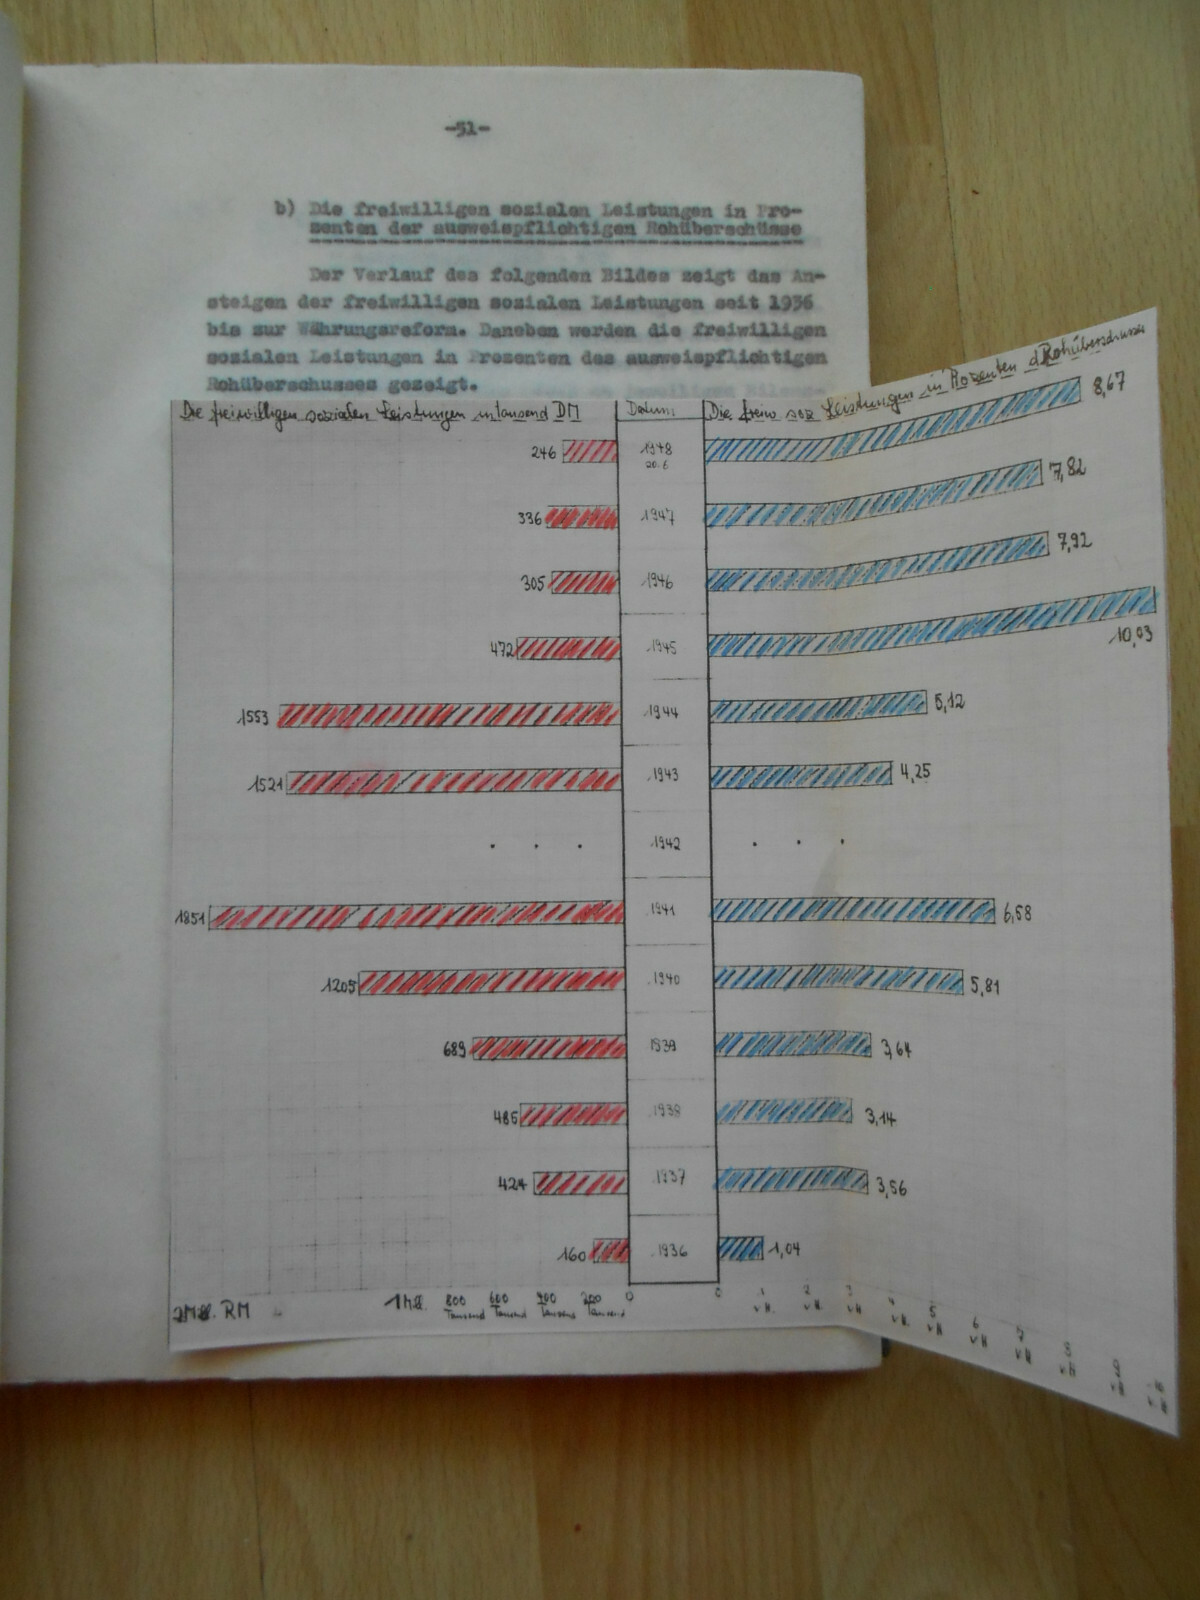 -51-
b) Die freiwilligen sozialen Leistungen in Pro-
zenten der ausweispflichtigen Rohüberschüsse
Der Verlauf des folgenden Bildes zeigt das An-
steigen der freiwilligen sozialen Leistungen seit 1936
bis zur Währungsreform. Daneben werden die freiwilligen
sozialen Leistungen in Prozenten des ausweispflichtigen
Rohüberschusses gezeigt.
Die freiwilligen sozialen Leistungen in tausend DM Datum Die freiw soz Leistungen in Prozenten d Rohüberschusses
246 1948 8,67
20.6
336 1947 7,82
305 1946 7,92
472 1945 10,03
1553 1944 5,12
1521 1943 4,25
. . . 1942 . . .
1851 1941 6,58
1205 1940 5,81
689 1939 3,64
485 1938 3,14
424 1937 3,56
160 1936 1,04
2 Mill. RM 1 Mill. 800 600 400 200 0 0 1 2 3 4 5 6 7 8
Tausend Tausend Tausend Tausend v H. v H. v H. v H. v H v H v H v H